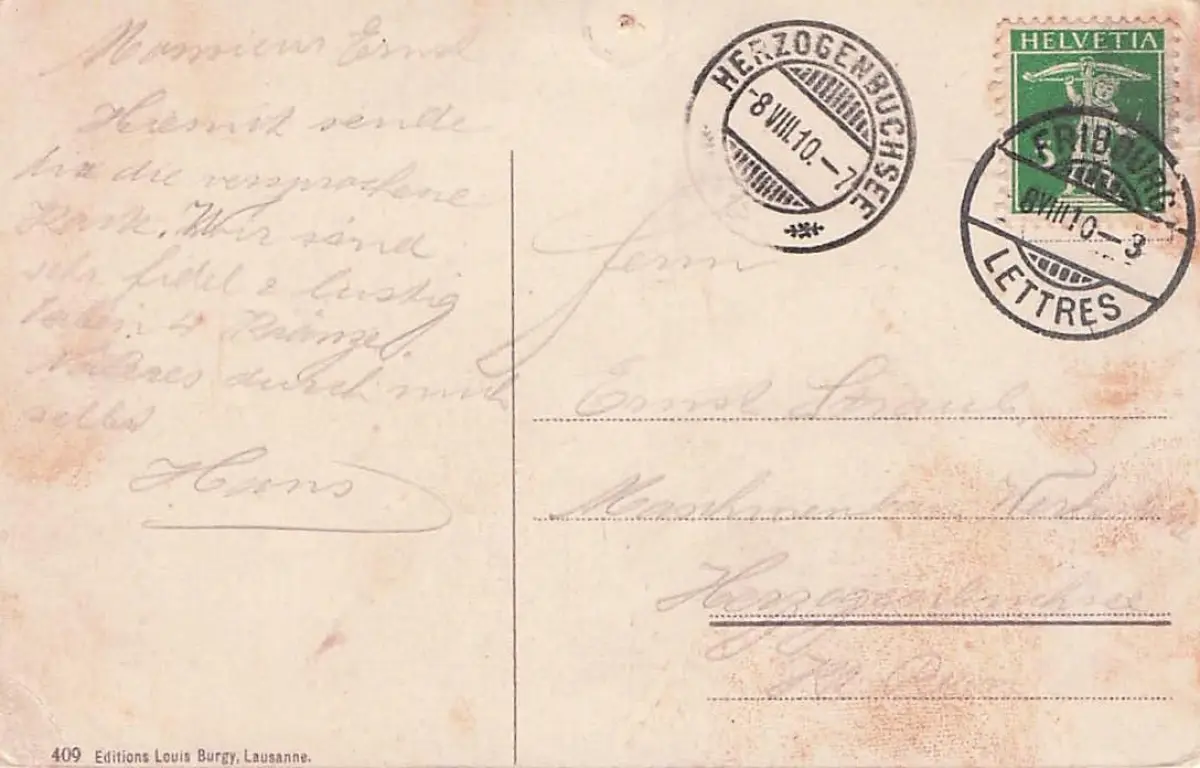 Monsieur Ernst
Hiermit sende
dir die versprochene
Karte. Wir sind
sehr fidel & lustig
haben 4 Kränze.
Näheres durch mich
selbst
Hans
HERZOGENBUCHSEE
-8 VIII.10.-7
HELVETIA
5
FRIBOURG
8 VIII 10-3
LETTRES
Herrn
Ernst
Herzogenbuchsee
Kt. Bern
409 Editions Louis Burgy, Lausanne.